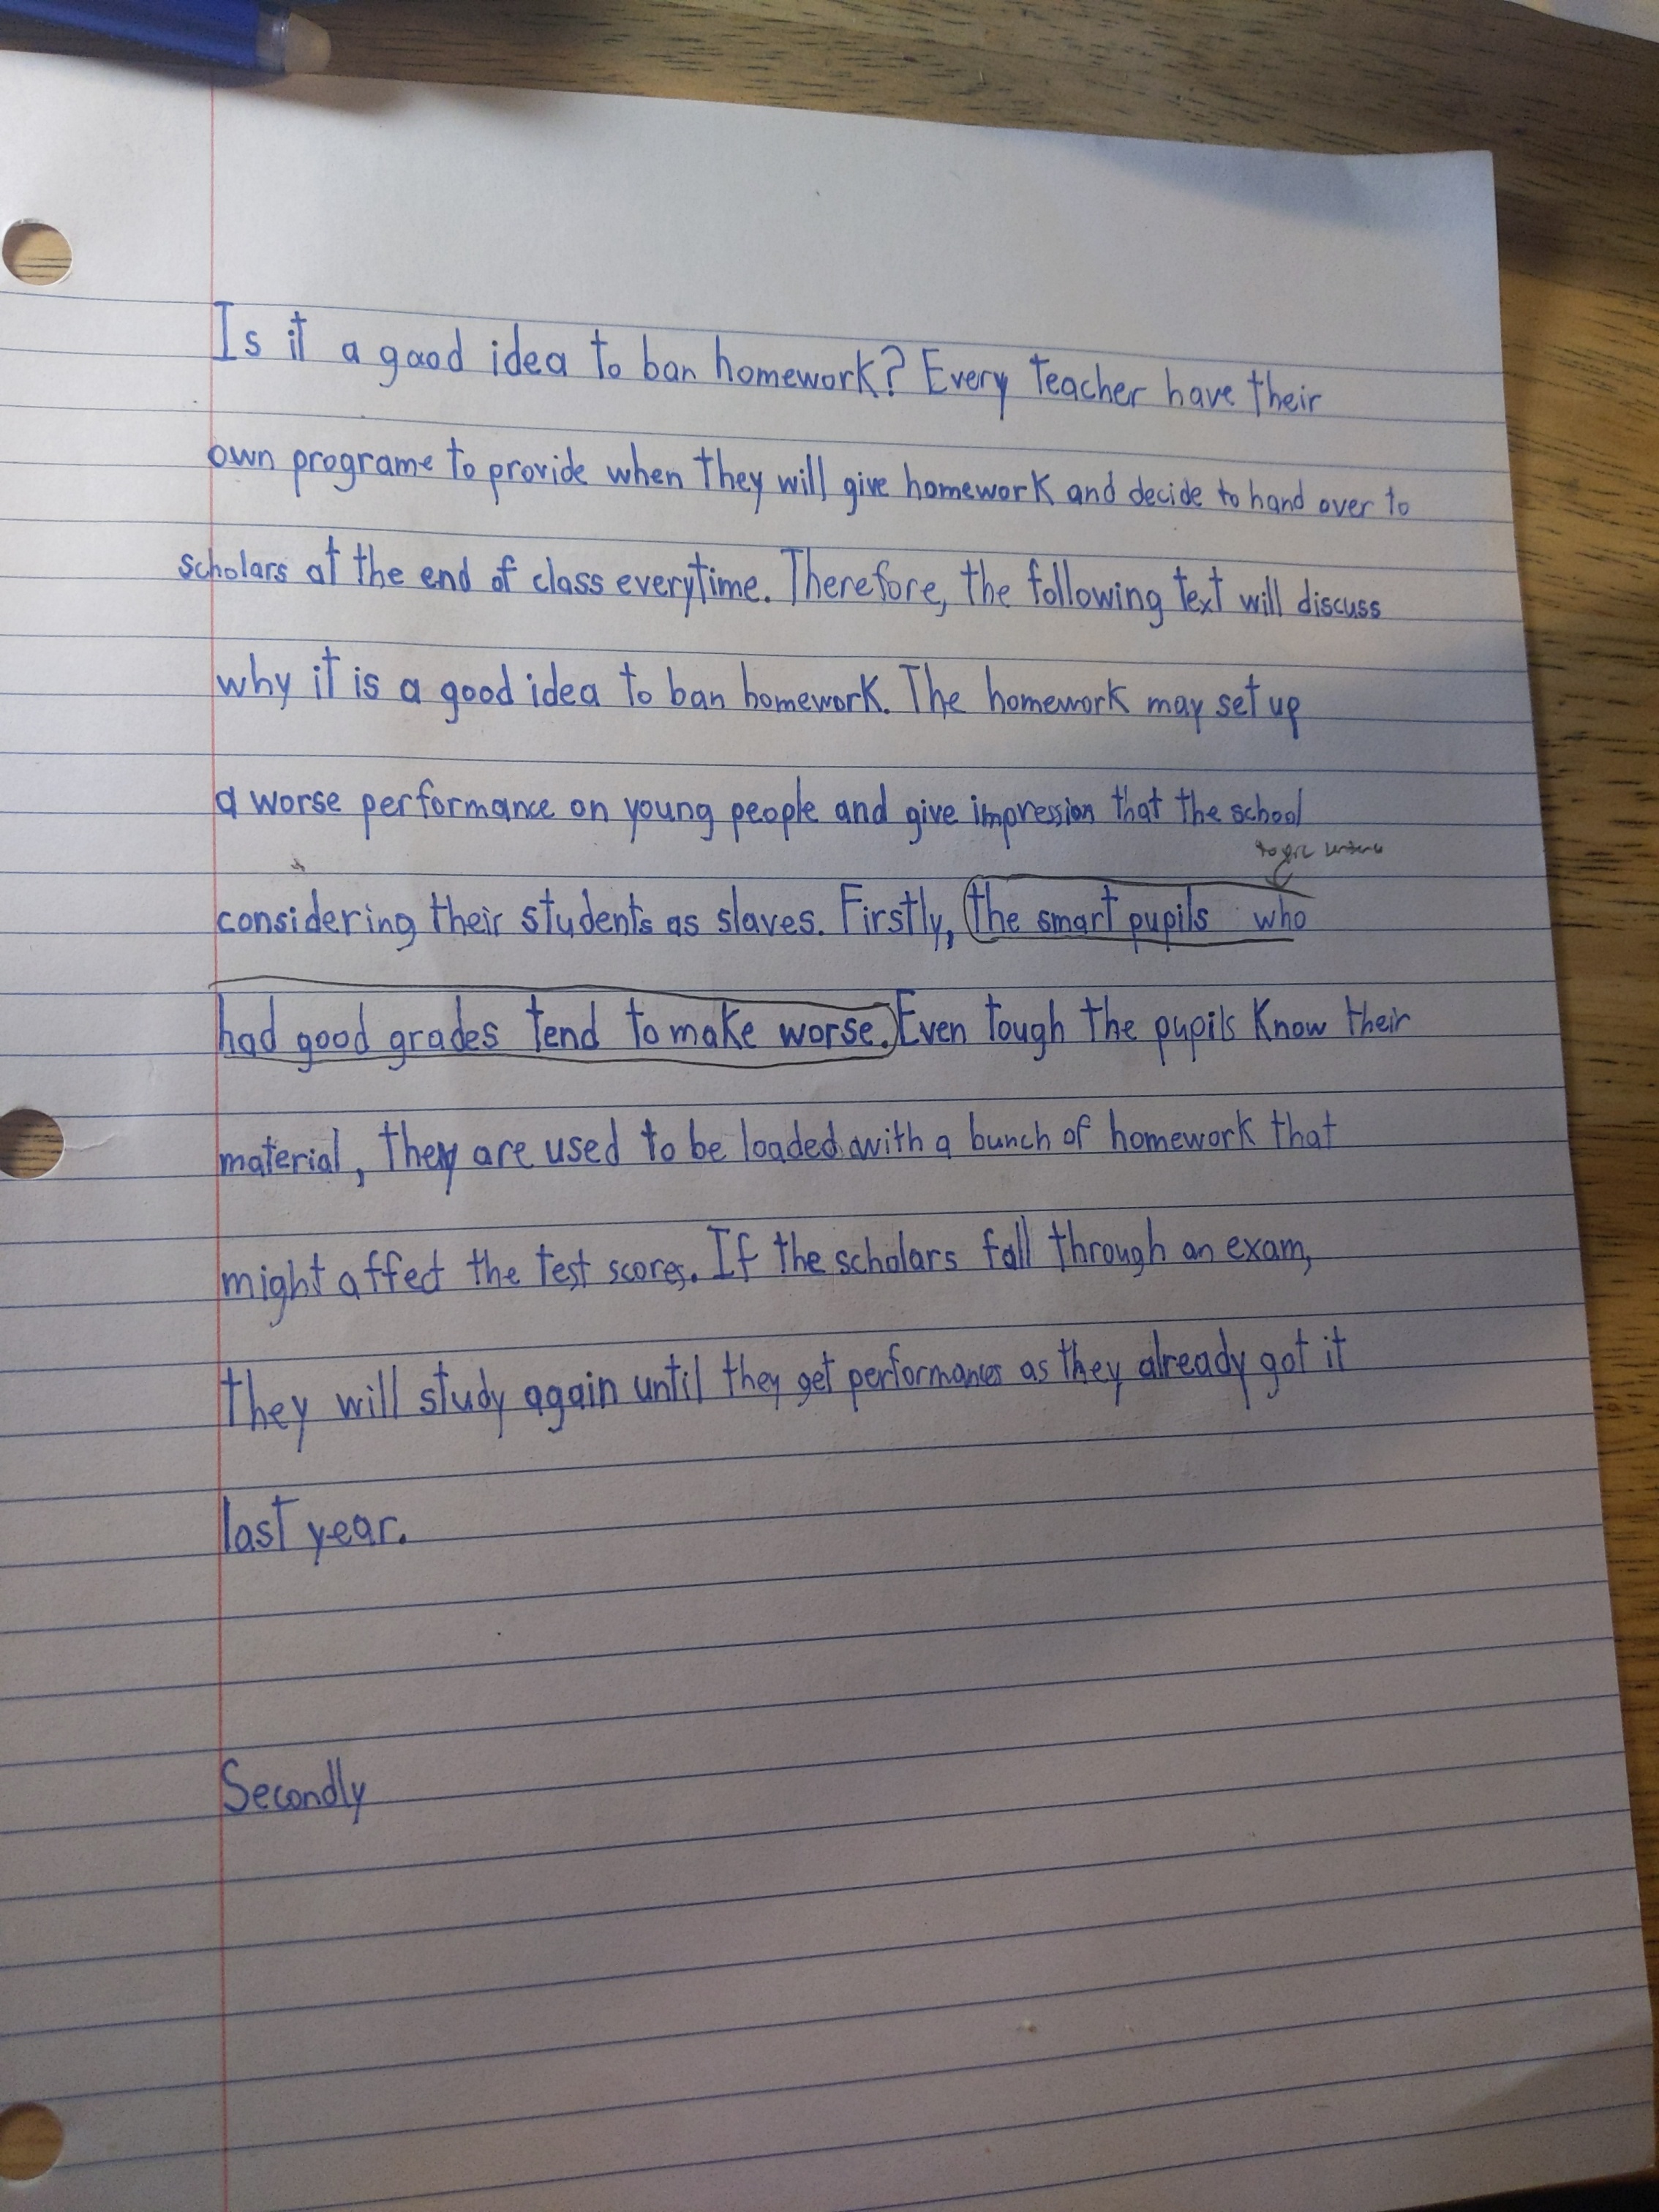 Is it a good idea to ban homework? Every teacher have their
own programe to provide when they will give homework and decide to hand over to
scholars at the end of class everytime. Therefore, the following text will discuss
why it is a good idea to ban homework. The homework may set up
a worse performance on young people and give impression that the school
topic sentence
considering their students as slaves. Firstly, the smart pupils who
had good grades tend to make worse. Even tough the pupils know their
material, they are used to be loaded with a bunch of homework that
might affect the test scores. If the scholars fall through an exam,
they will study again until they get performances as they already got it
last year.
Secondly